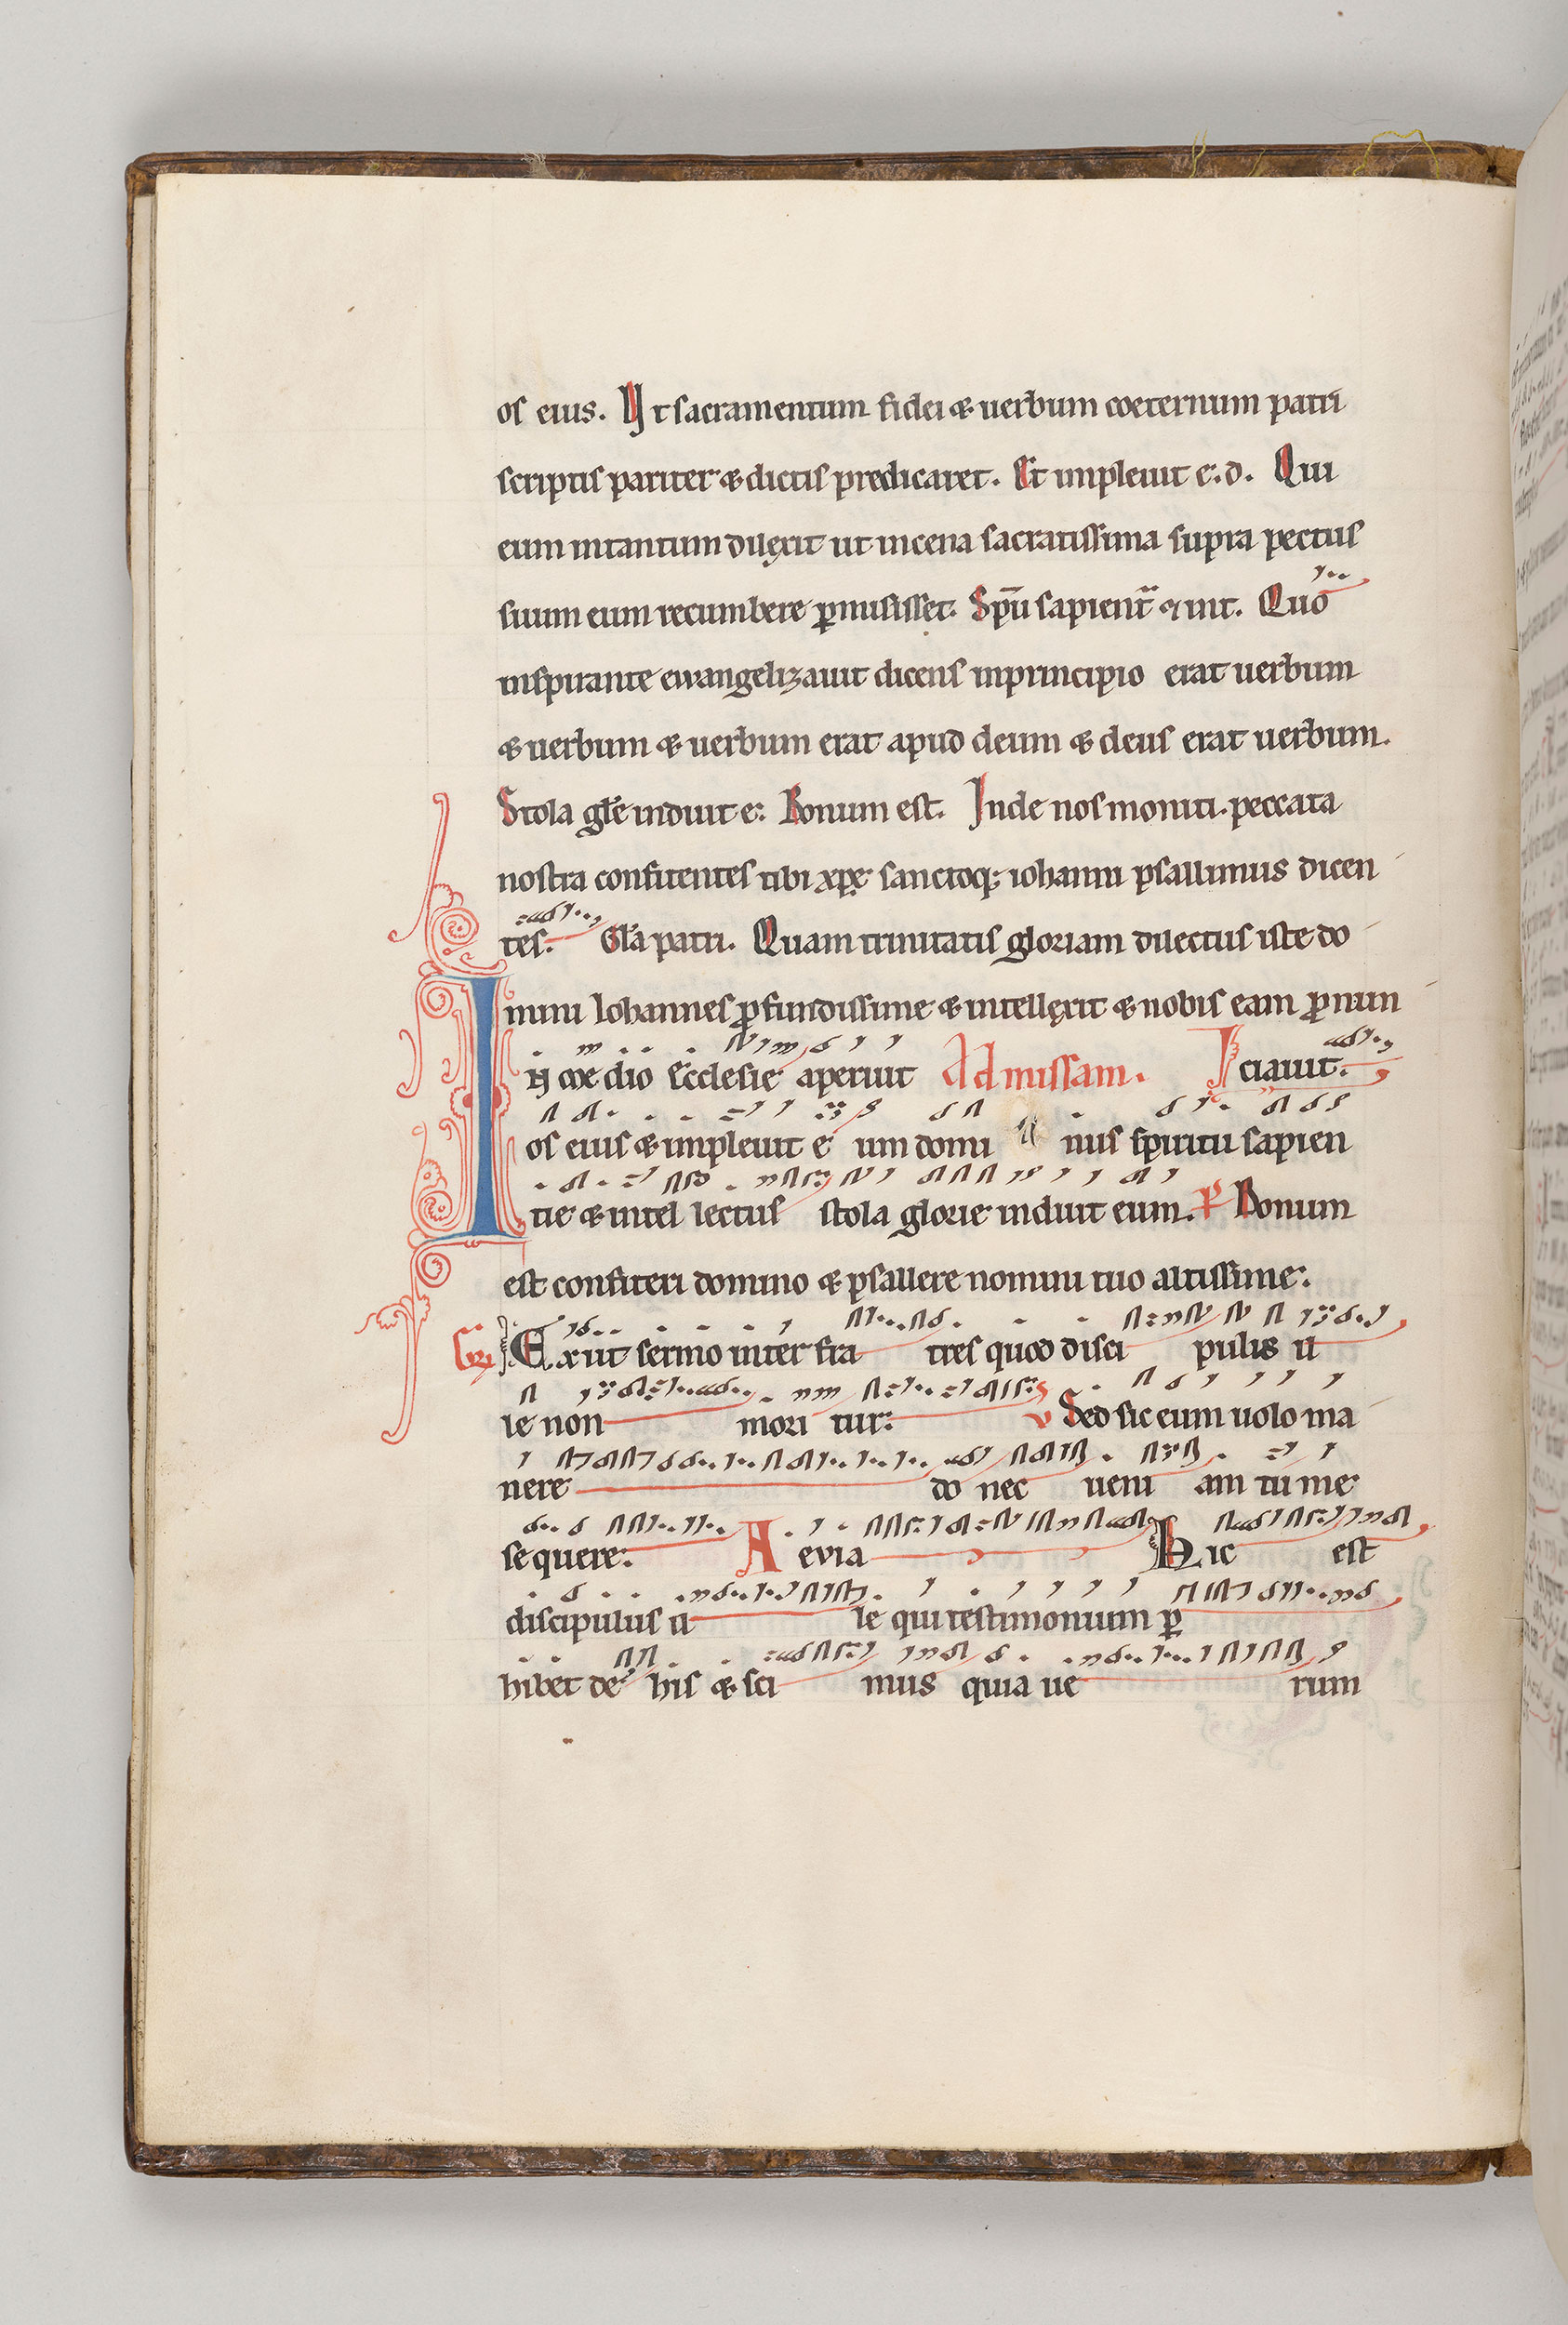 os eius. Ut sacramentum fidei & uerbum coeternum patri
scriptis pariter & dictis predicaret. Et impleuit e. d. Qui
eum intantum dilexit ut incena sacratissima supra pectus
suum eum recumbere ꝑmisisset. Spū sapient̄ ⁊ int. Quo
inspirante ewangelizauit dicens inprincipio erat uerbum
& uerbum & uerbum erat apud deum & deus erat uerbum.
Stola gl̄e induit e. Bonum est. Inde nos moniti. peccata
nostra confitentes tibi xp̄e sanctoq; iohanni psallimus dicen
tes. Gl̄a patri. Quam trinitatis gloriam dilectus iste do
mini Iohannes ꝓfundissime & intellexit & nobis eam ꝓnun
IN me dio Ecclesie aperuit Ad missam. ciauit.
os eius & impleuit e um domi nus spiritu sapien
tie & intel lectus stola glorie induit eum. P Bonum
est confiteri domino & psallere nomini tuo altissime.
Gr̄. Exiit sermo inter fra tres quod disci pulus il
le non mori tur. v Sed sic eum uolo ma
nere do nec ueni am tu me
sequere. A evia Hic est
discipulus il le qui testimonium ꝑ
hibet de his & sci mus quia ue rum